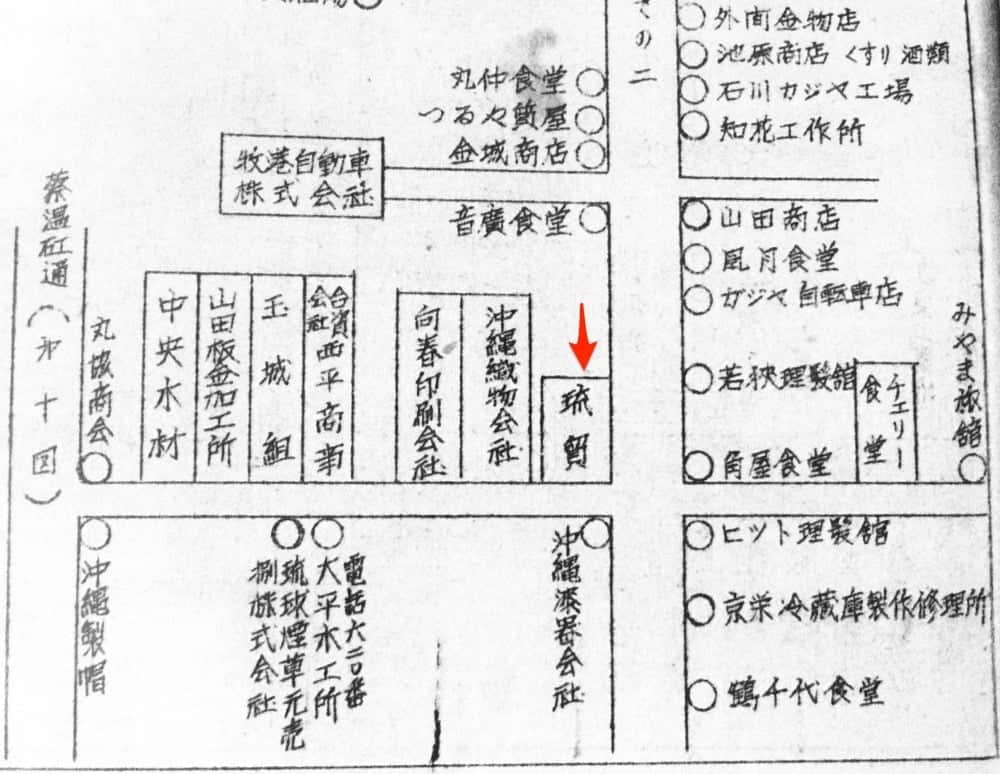 くの二
外間金物店
池原商店 くすり 酒類
石川カジヤ工場
知花工作所
丸仲食堂
つるや質屋
金城商店
牧港自動車
株式会社
音廣食堂
山田商店
風月食堂
ガジヤ自転車店
若狭理髪舘
角屋食堂
チェリー
食堂
みやま旅館
蔡温虹通(第十図)
丸協商会
中央水材
山田板金加工所
玉城組
合資
会社
西平商事
向春印刷会社
沖縄織物会社
琉貿
沖縄製帽
電話六二〇番
大平木工所
琉球煙草元売
捌株式会社
沖縄漆器会社
ヒット理髪舘
京栄冷蔵庫製作修理所
鶴千代食堂